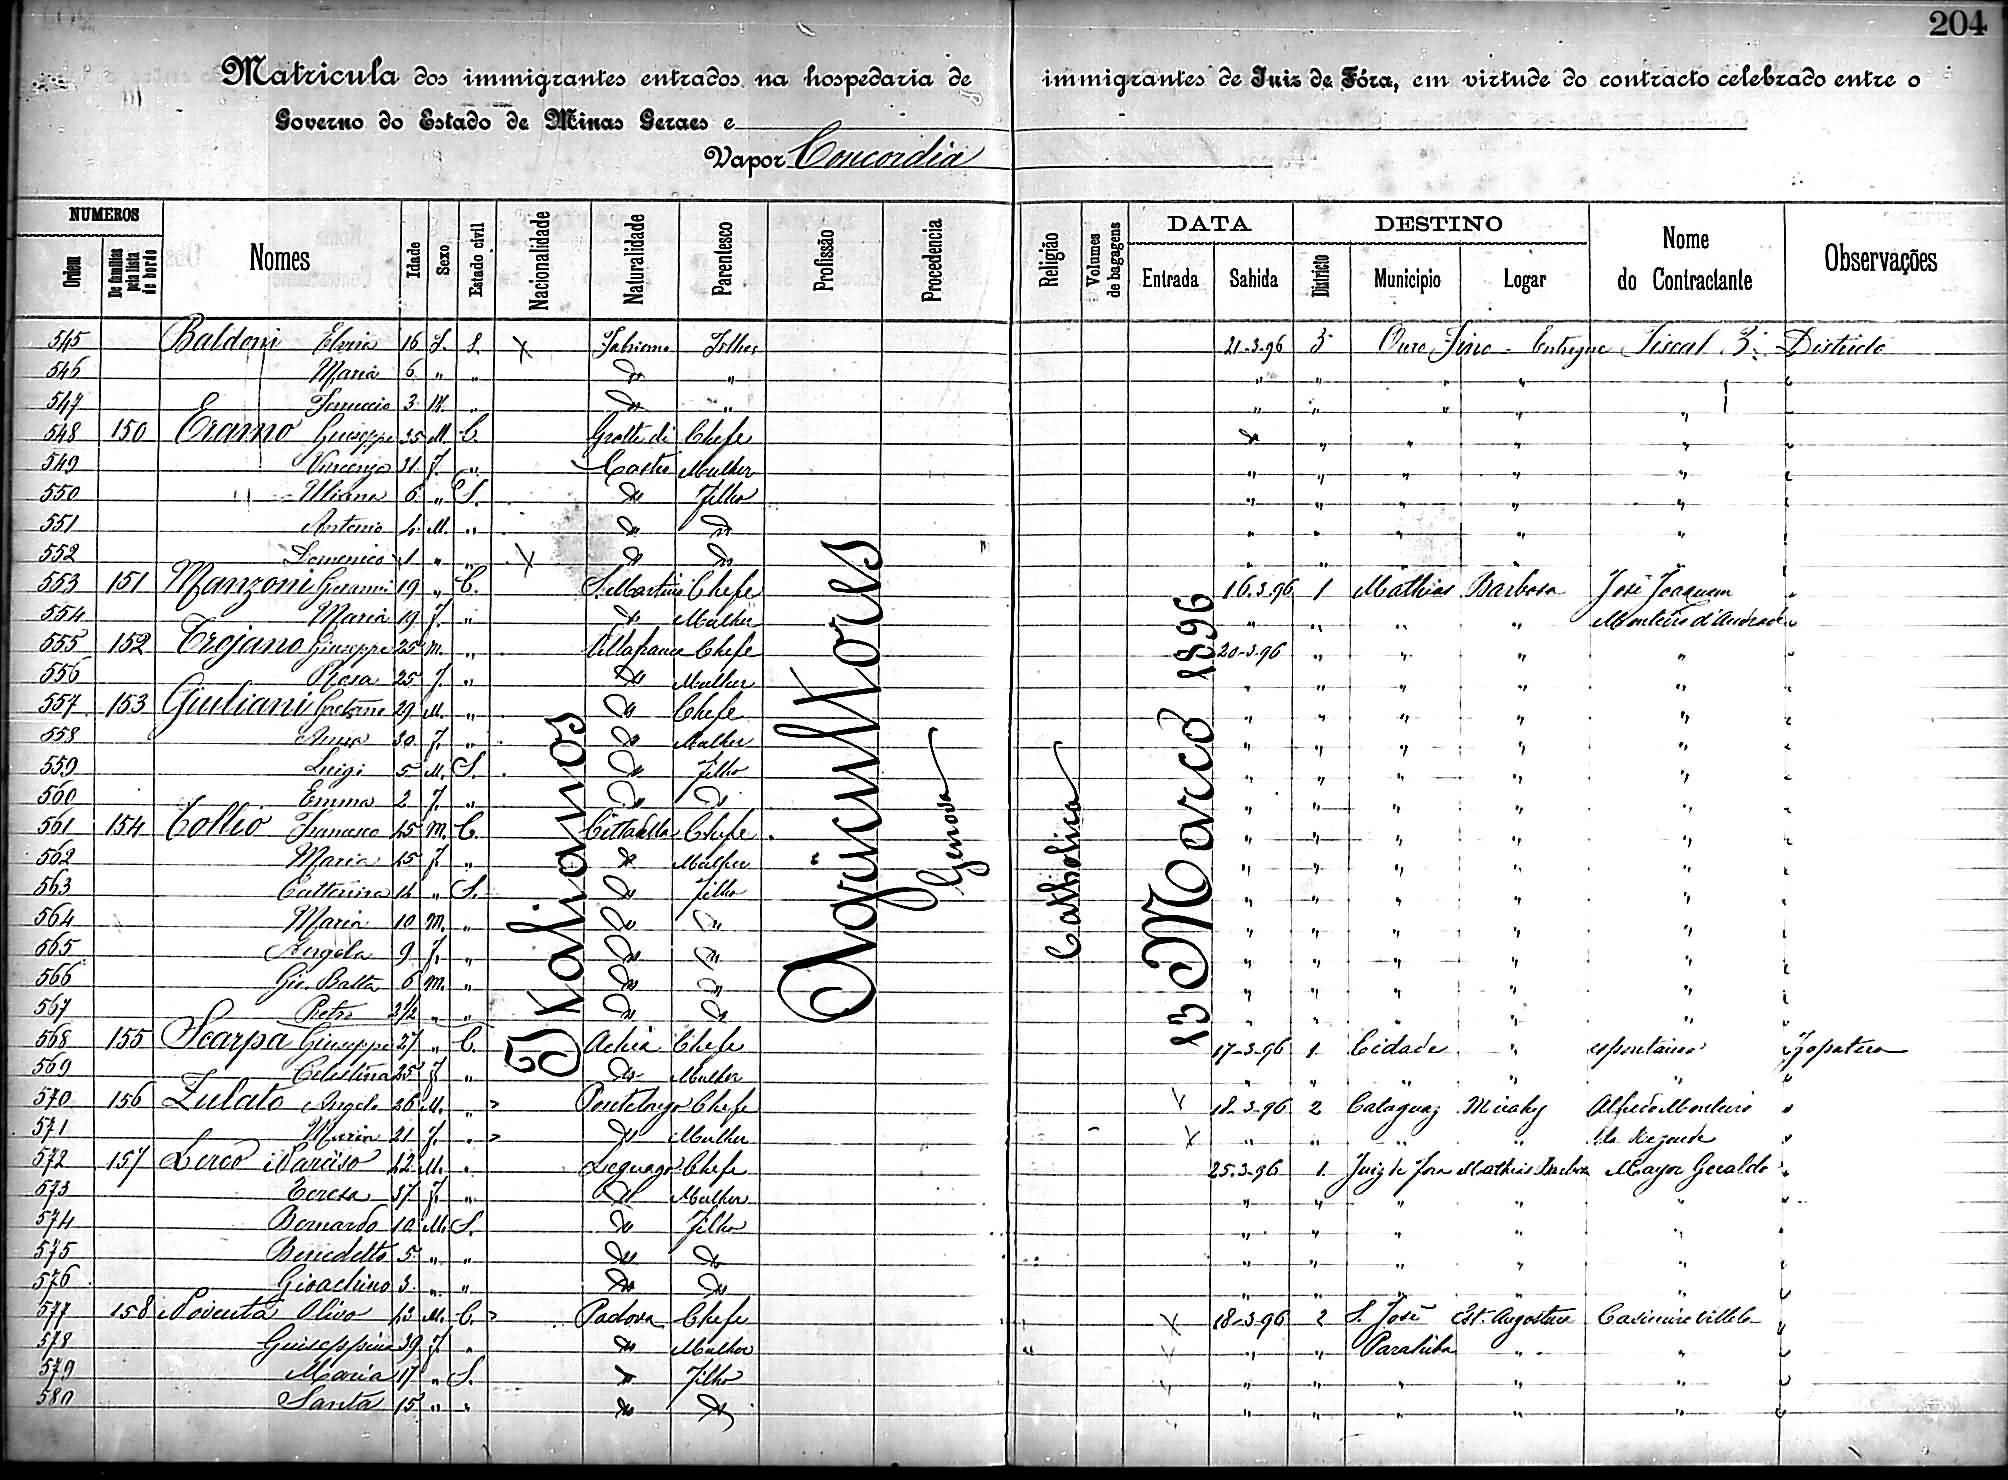 204
Matricula dos immigrantes entrados na hospedaria de immigrantes de Juiz de Fóra, em virtude do contracto celebrado entre o
Governo do Estado de Minas Geraes e
Vapor Concordia
NUMEROS
Ordem
De familias pela lista de bordo
Nomes
Idade
Sexo
Estado civil
Nacionalidade
Naturalidade
Parentesco
Profissão
Procedencia
Religião
Volumes de bagagens
DATA
Entrada
Sahida
DESTINO
Districto
Municipio
Logar
Nome do Contractante
Observações
Italianos
Agricultores
Genova
Catholica
13 Março 1896
545 Baldoni Elvira 16 f. S. X Fabriano Filhos 21-3-96 3 Ouro Fino - Entregue Fiscal 3º Districto
546 Maria 6 " " Do " " " " " "
547 3 M. " Do " " " " " "
548 150 Eramo Giuseppe 35 M. C. Grotte di Chefe Do " " " "
549 Vincenza 31 f. " Castro Mulher " " " " "
550 6 " S. Do Filho " " " " "
551 Antonio 4 M. " Do Do " " " " "
552 Domenico 1 " " X Do Do " " " " "
553 151 Manzoni Giovanni 19 " C. S. Martino Chefe 16-3-96 1 Mathias Barbosa José Joaquim "
554 Maria 19 f. " Do Mulher " " " " Monteiro d'Andrade "
555 152 Trojano Giuseppe 25 M. " Villafranca Chefe 20-3-96 " " " " "
556 Rosa 25 f. " Do Mulher " " " " " "
557 153 Giuliani Gaetano 29 M. " Do Chefe " " " " " "
558 Anna 30 f. " Do Mulher " " " " " "
559 Luigi 5 M. S. Do Filho " " " " " "
560 Emma 2 f. " Do Do " " " " " "
561 154 Tollio Francesco 45 M. C. Cittadella Chefe " " " " " "
562 Maria 45 f. " Do Mulher " " " " " "
563 Catterina 14 " S. Do Filho " " " " " "
564 Maria 10 M. " Do " " " " " " "
565 Angela 9 f. " Do Do " " " " " "
566 Gio. Batta 6 M. " Do Do " " " " " "
567 Pietro " " Do Do " " " " " "
568 155 Scarpa Giuseppe 27 " C. Chefe 17-3-96 1 Cidade " espontaneo
569 Celestina 25 f. " Do Mulher " " " " " "
570 156 Zulato Angelo 26 M. " Pontelongo Chefe X 18-3-96 2 Cataguaz Mirahy Alfredo Monteiro "
571 Maria 21 f. " Do Mulher X " " " " de Rezende "
572 157 Lerco Narciso 42 M. " Legnago Chefe 25-3-96 1 Juiz de Fora Mathias Barbosa Mayor Geraldo "
573 Teresa 37 f. " Do Mulher " " " " " "
574 Bernardo 10 M. S. Do Filho " " " " " "
575 Benedetto 5 " " Do Do " " " " " "
576 Gioachino 3 " " Do Do " " " " " "
577 158 Noventa Olivo 43 M. C. Padova Chefe X 18-3-96 2 S. José Est. Angostura Casimiro Villela "
578 Guiseppina 39 f. " Do Mulher X " " Parahiba " " "
579 Maria 17 " S. Do Filho " " " " " "
580 Santa 15 " " Do Do " " " " " "